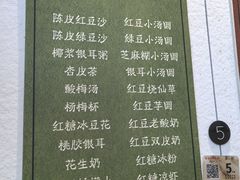 陈皮红豆沙 红豆小汤圆
陈皮绿豆沙 绿豆小汤圆
椰浆银耳粥 芝麻糊小汤圆
杏皮茶 银耳小汤圆
酸梅汤 红豆烧仙草
杨梅杯 红豆芋圆
红糖冰豆花 红豆老酸奶
桃胶银耳 红豆双皮奶
花生奶 红糖冰粉
红糖凉虾
5
5